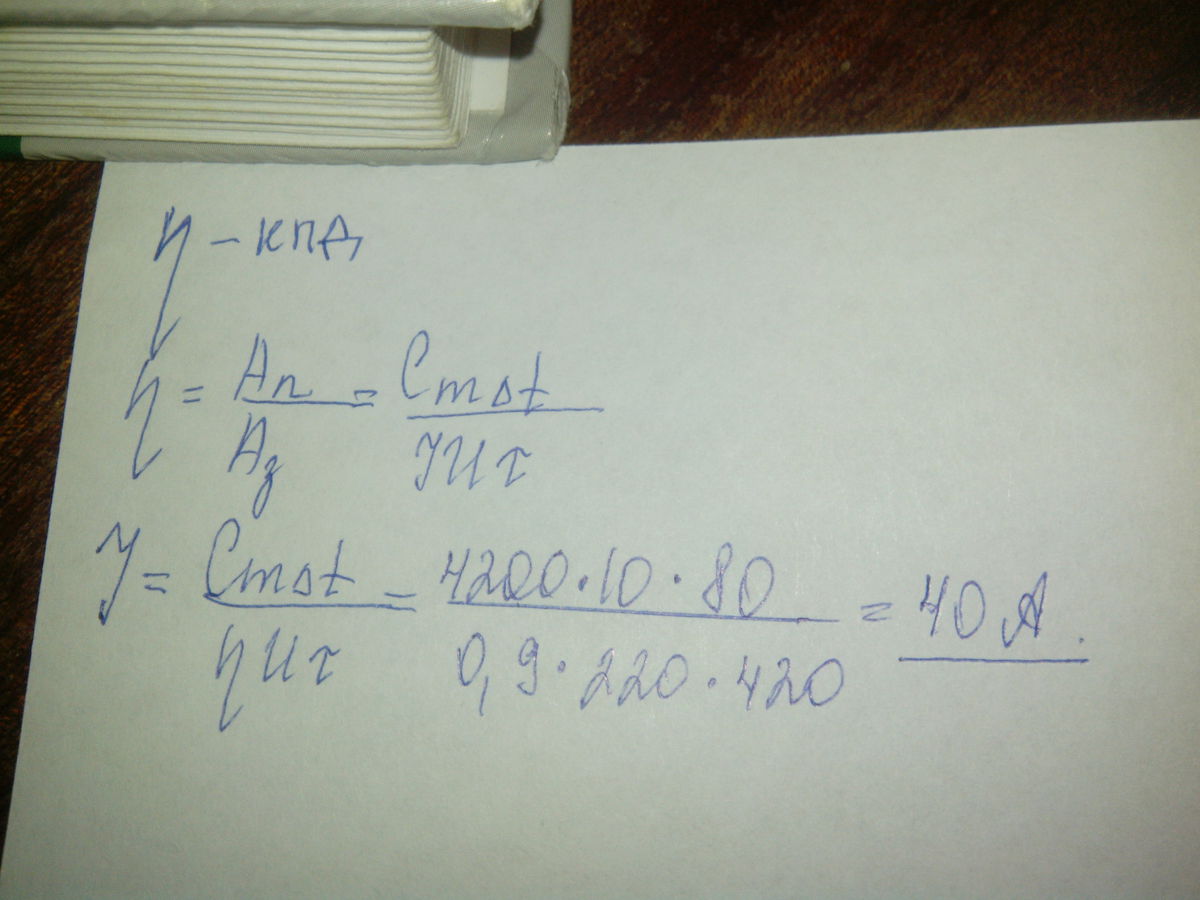 η – кпд
η = Aп / Aз = Cm∆t / IUτ
I = Cm∆t / ηUτ = 4200·10·80 / 0,9·220·420 = 40 A.